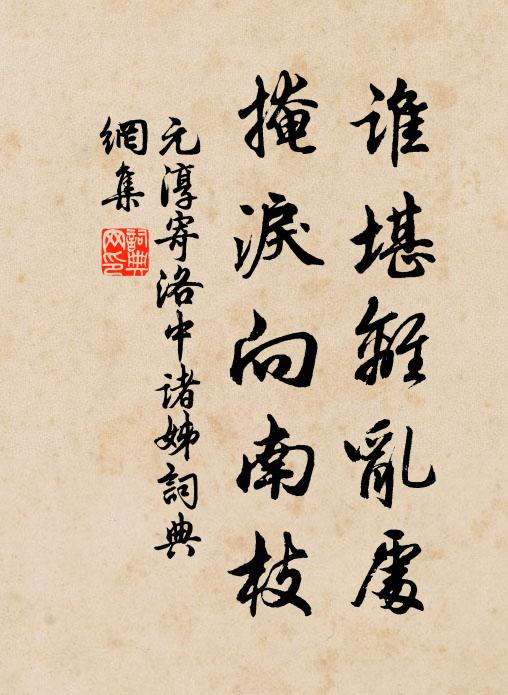 誰堪離亂處
掩淚向南枝
元淳寄洛中諸姊詞典
網集
詞典網印